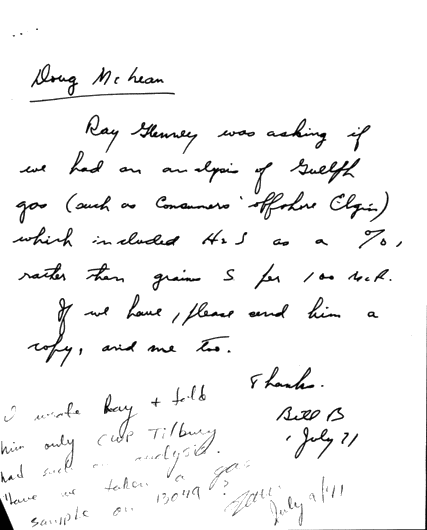 Doug McLean
Ray Glenney was asking if
we had an analysis of Guelph
gas (such as Consumers' offshore Elgin)
which included H2S as a %,
rather than grains S per 100 McF.
If we have, please send him a
copy, and me too.
Thanks.
Bill B
July 21
I wrote Ray + told
him only CWP Tilbury
had such an analysis.
Have we taken a gas
sample on 13049?
July 21